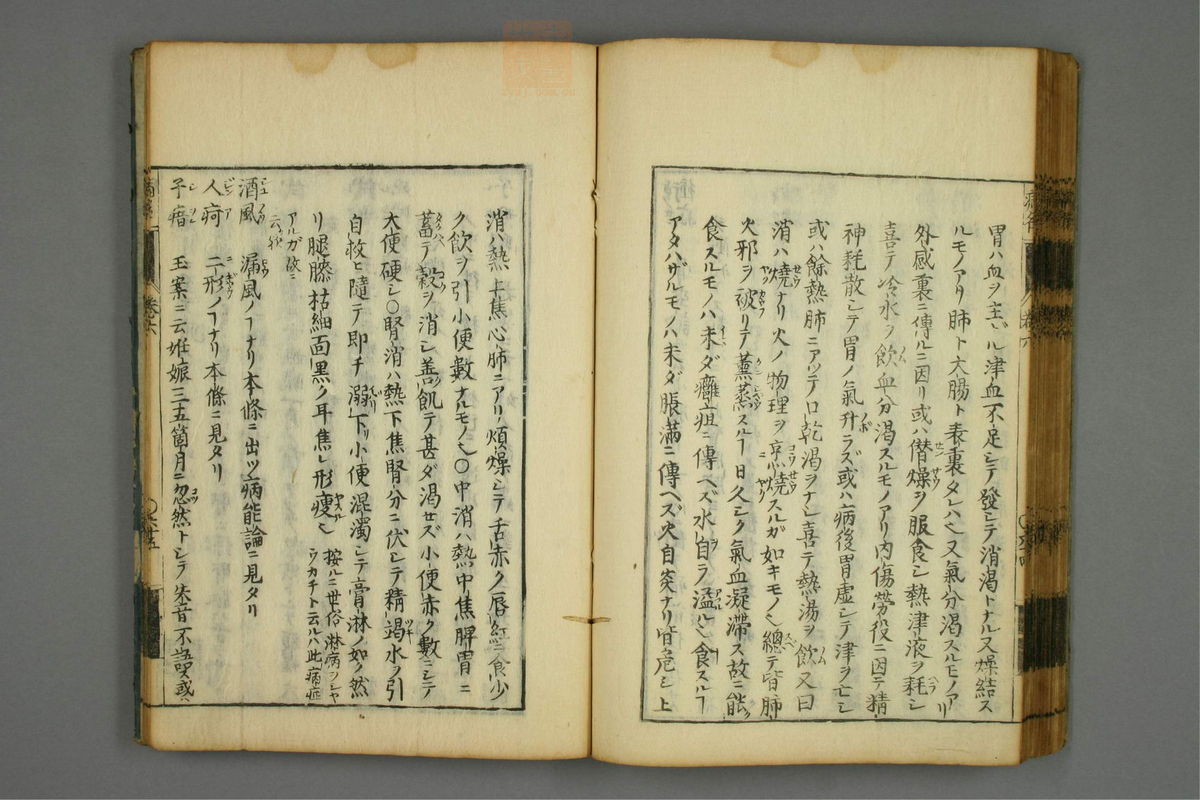 胃ハ血ヲ主ドル津血不足シテ發シテ消渇トナル又燥結ス
ルモノアリ肺ト大腸ト表裏タレハ乄又氣分渇スルモノアリ
外感裏ニ傳ルニ因リ或ハ僣燥ヲ服食シ熱津液ヲ耗シ
喜テ冷水ヲ飲ム血分渇スルモノアリ内傷勞役ニ因テ精
神耗散シテ胃ノ氣升ラズ或ハ病後胃虚シテ津ヲ亡シ
或ハ餘熱肺ニアツテ口乾渇ヲナシ喜テ熱湯ヲ飲ム又曰
消ハ燒ナリ火ノ物理ヲ烹燒スルガ如キモノ也總テ皆肺
火邪ヲ被リテ薫蒸スルヿ日久シク氣血凝滞ス故ニ能
食スルモノハ未ダ癰疽ニ傳ヘズ水自ラ溢ル也食スルヿ
アタハザルモノハ未ダ脹滿ニ傳ヘズ火自炎ナリ皆危シ上
消ハ熱上焦心肺ニアリ煩燥シテ舌赤ク唇紅ニ食少
ク飲ヲ引小便數ナルモノ也○中消ハ熱中焦脾胃ニ
蓄テ穀ヲ消シ善飢テ甚ダ渇セズ小便赤ク數ニシテ
大便硬シ○腎消ハ熱下焦腎分ニ伏シテ精竭水ヲ引
自救ヒ隨テ即チ溺下リ小便混濁シテ膏淋ノ如ク然
リ腿膝枯細面黒ク耳焦レ形痩也 按ルニ世俗淋病ヲシヤ
ウカチト云ルハ此病症
アルガ故ニ
云
酒風 漏風ノヿナリ本條ニ出ヅ病能論ニ見タリ
人疴 二形ノヿナリ本條ニ見タリ
子瘖 玉案ニ云姙娠三五箇月ニ忽然トシテ失音不語或ハ